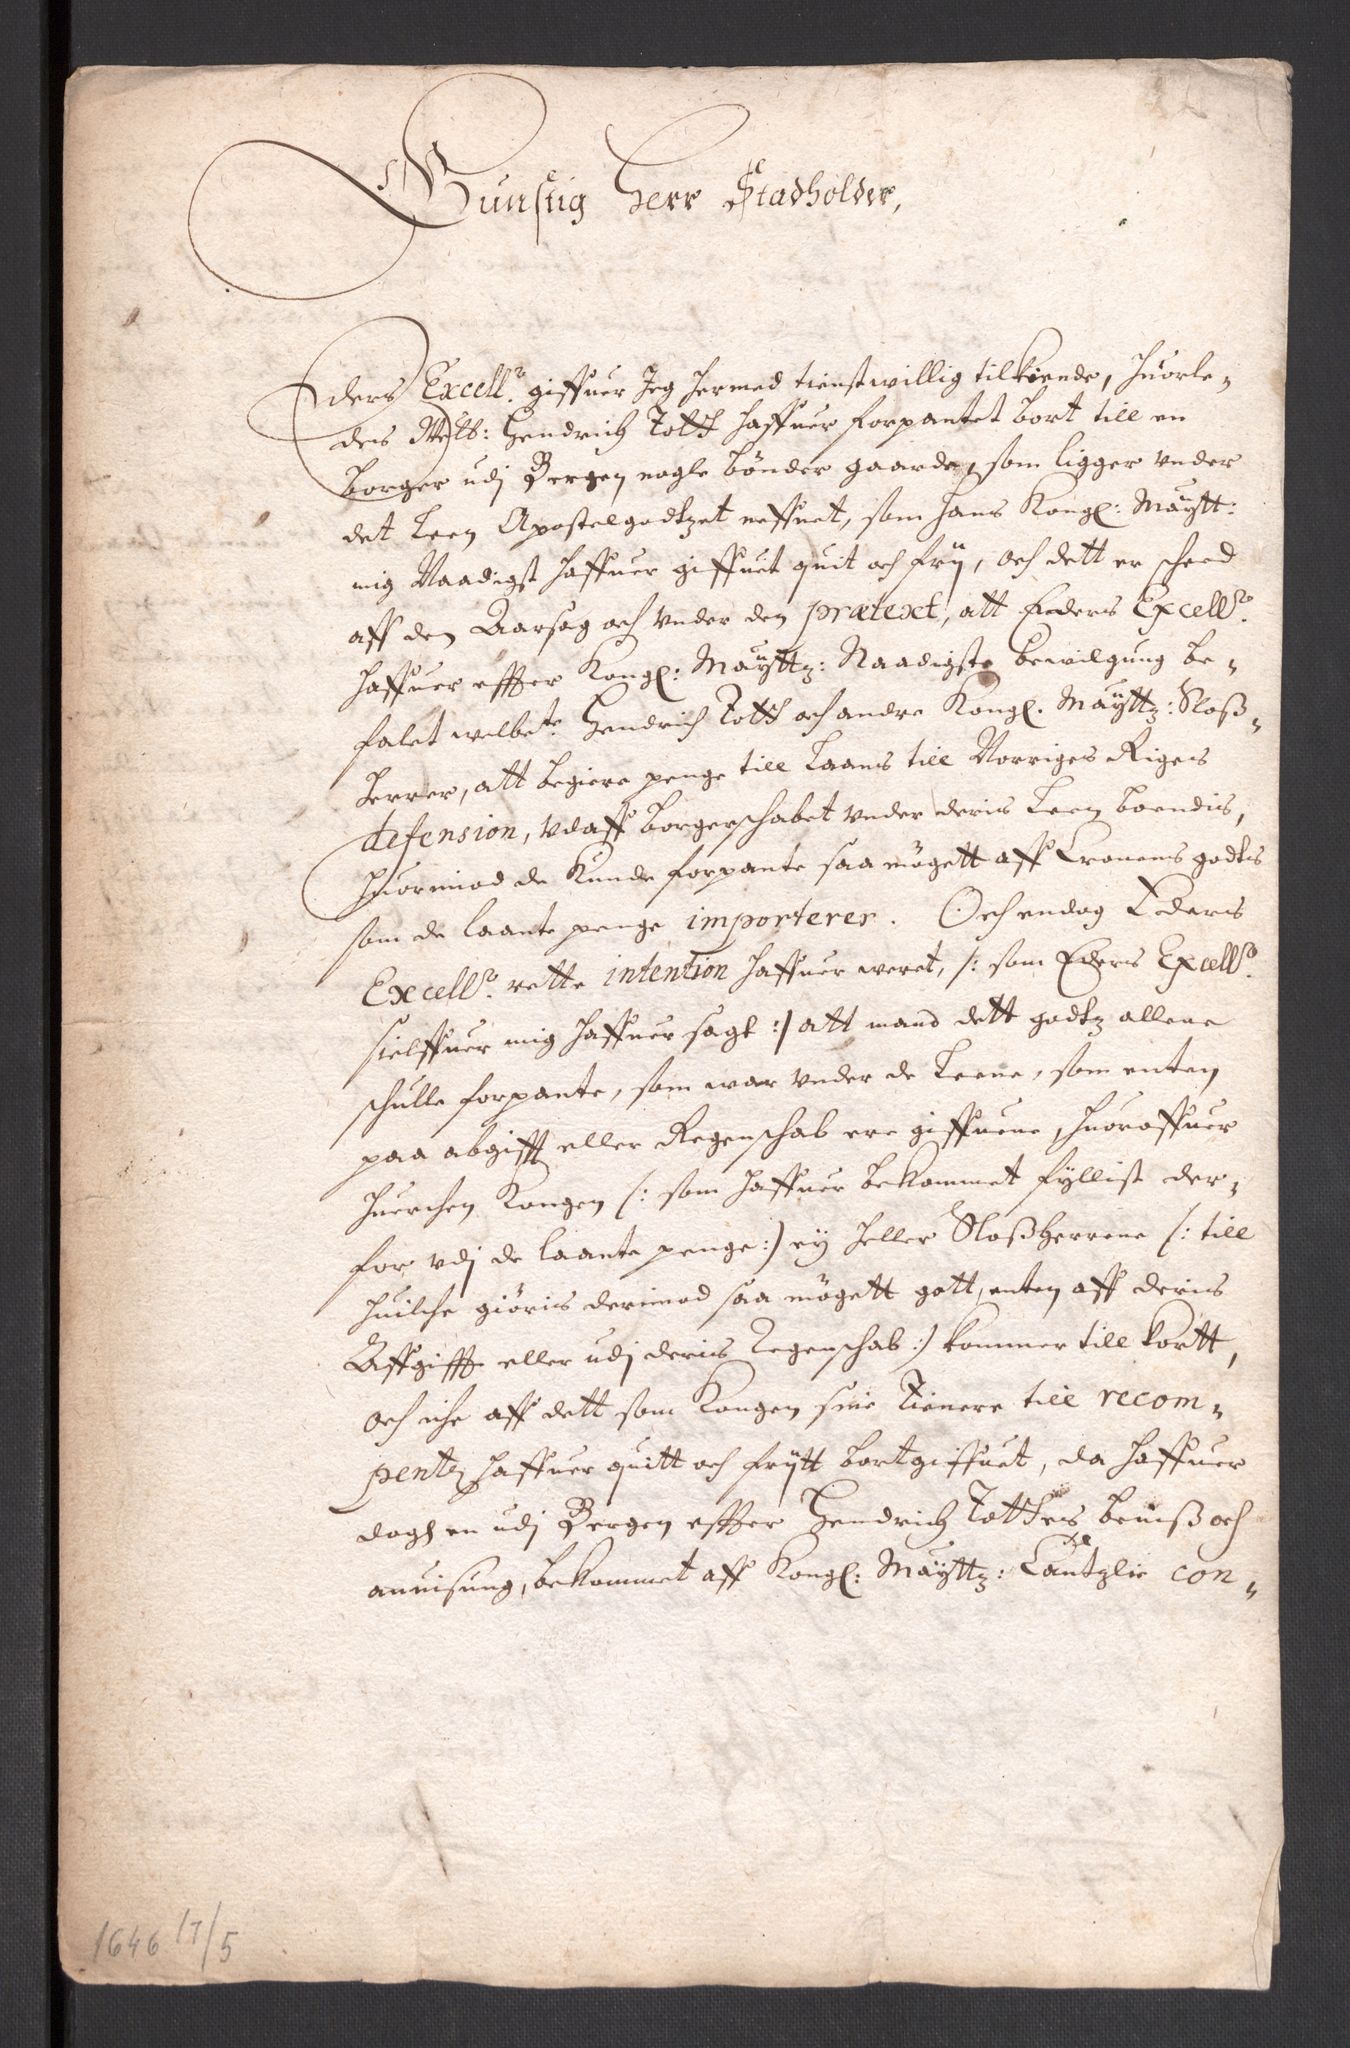 Gunstig Herr Stadholder,
Eders Excell:e giffuer Jeg hermed tienstwillig tilkiende, huorle-
des Welb: Hendrich Tott haffuer forpantet bort till en
borger udj Bergen nogle bønder gaarde, som ligger vnder
det Leen Apostelgodtzet neffnet, som hans Kongl: Maÿtt:
mig Naadigst haffuer giffuet quit och frÿ, och dett er scheed
aff den Aarsag och vnder den prætext, att Eders Excell:e
haffuer effter Kongl: Maÿttz: Naadigste bewilgung be-
falet welbete: Hendrich Tott och andre Kongl. Maÿttz: Sloß-
herrer, att begiere penge till Laans till Norriges Rigens
defension, vdaff borgerschabet vnder deris Leen boendis,
huorimod de kunde forpante saa møgett aff Cronens godtz
som de laante penge importerer. Och endog Eders
Excell:e rette intention haffuer weret, /: som Eders Excell:e
sielffuer mig haffuer sagt :/ att mand dett godtz allene
schulle forpante, som war vnder de Leene, som enten
paa abgifft eller Regenschab ere giffuene, huoroffuer
huerchen Kongen /: som haffuer bekommet fyllist der-
for vdj de laante penge :/ eÿ heller Sloßherrene /: till
huilche giøris derimod saa møgett gott, enten aff deris
Affgifft eller udj deris Regenschab :/ kommer till kortt,
och iche aff dett som Kongen sine Tienere till recom-
pentz haffuer quitt och frÿtt bortgiffuet, da haffuer
dogh en udj Bergen effter Hendrich Tottes beuiß och
anuisung, bekommet aff Kongl: Maÿttz: Cantzlie con-
1646 17/5